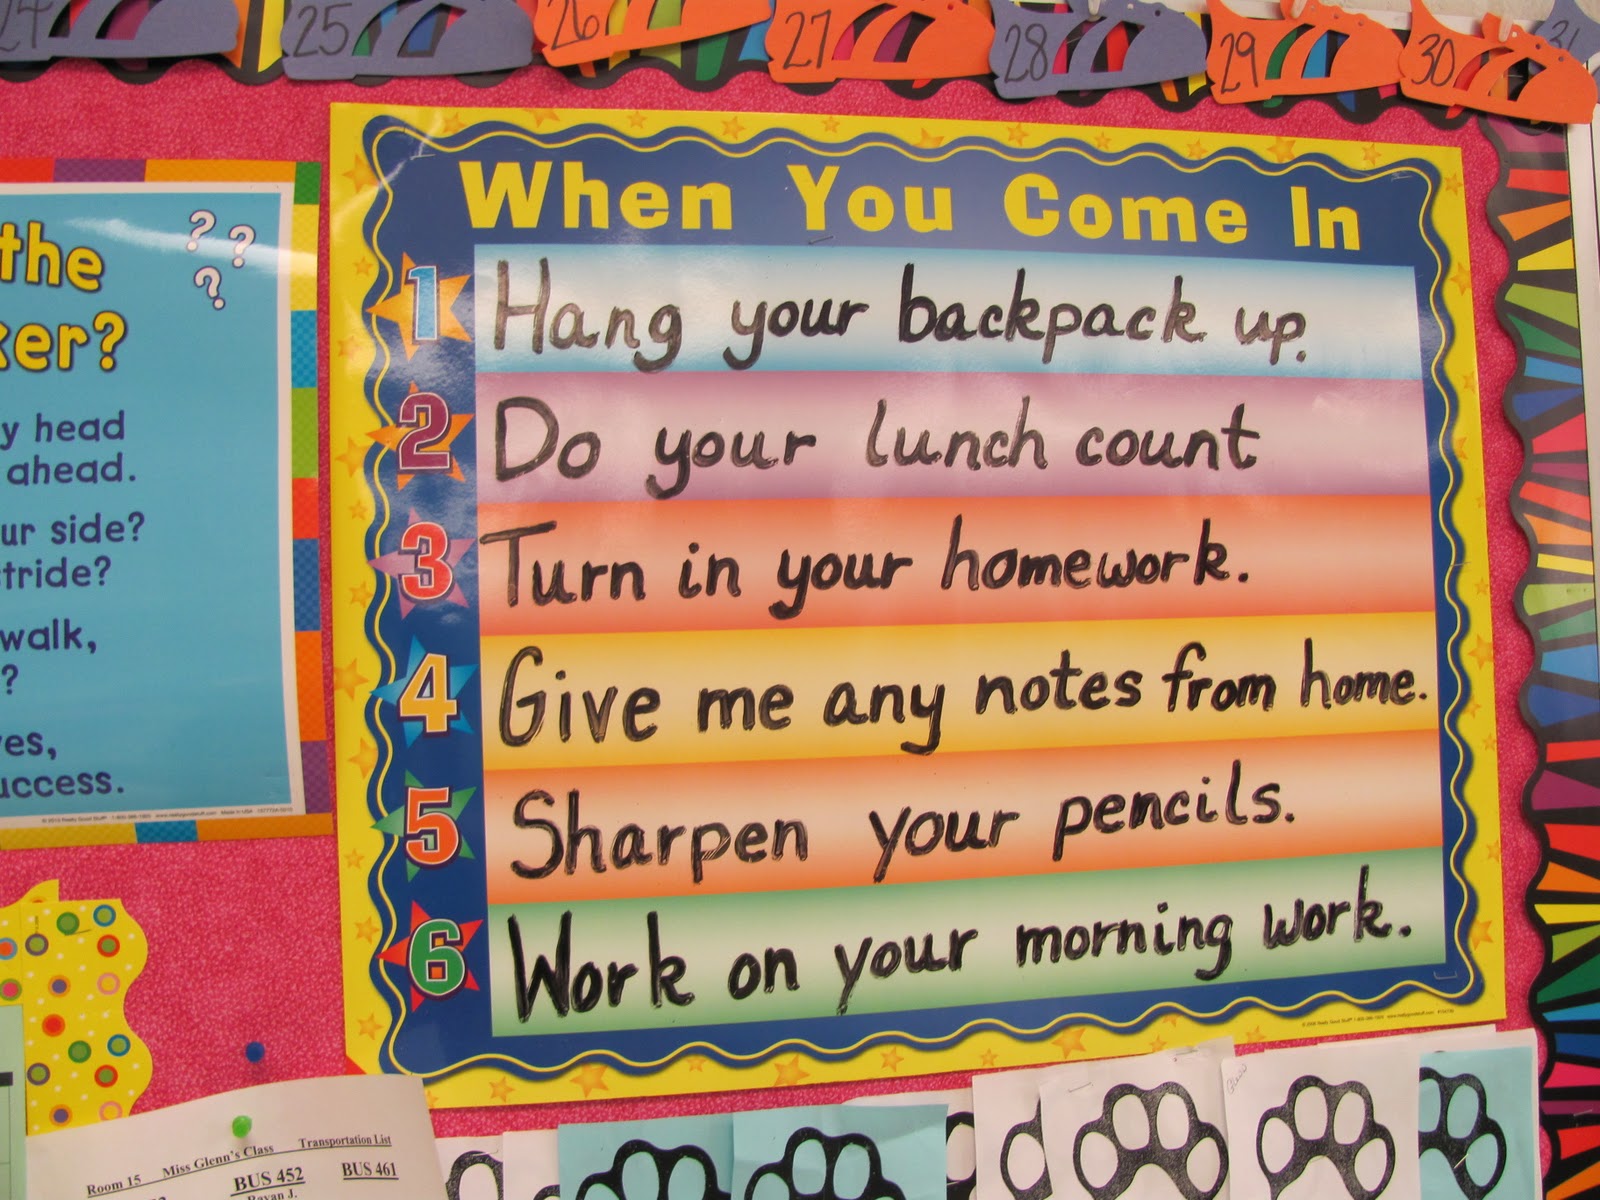 24 25 26 27 28 29 30 31
the
ker?
y head
ahead.
ur side?
tride?
walk,
?
es,
uccess.
When You Come In
1 Hang your backpack up.
2 Do your lunch count
3 Turn in your homework.
4 Give me any notes from home.
5 Sharpen your pencils.
6 Work on your morning work.
Room 15 Miss Glenn's Class Transportation List
BUS 452 BUS 461
Bryan J.